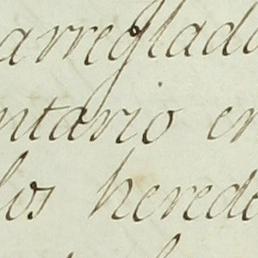 arreglado
ntario en
los herede